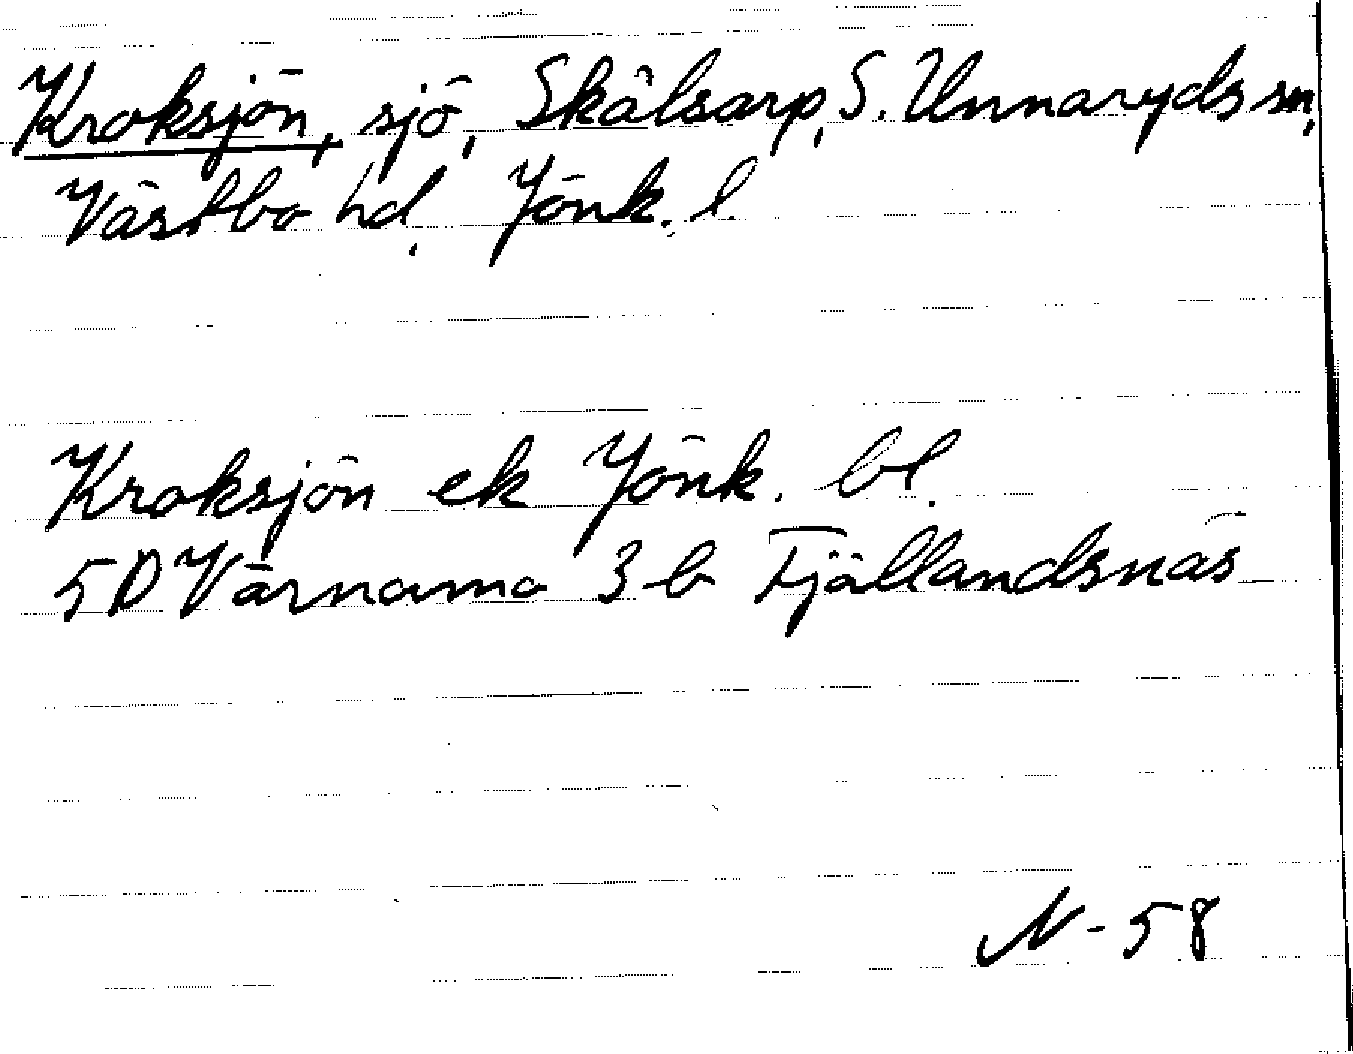 Kroksjön, sjö, Skålsarp, S. Unnaryds sn,
Västbo hd, Jönk. l.
Kroksjön ek Jönk. bl.
5D Värnamo 3 b Fjällandsnäs
N-58